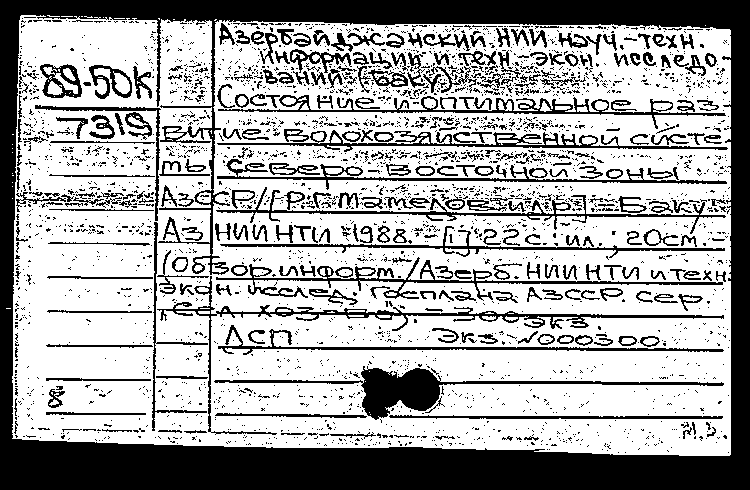 Азербайджанский НИИ науч.-техн.
информации и техн.-экон. исследо-
ваний (Баку)
89-50К
Состояние и оптимальное раз-
7319
витие водохозяйственной систе-
мы северо-восточной зоны
АзССР/[Р.Г. Мамедов и др.] – Баку:
АзНИИНТИ, 1988. – [1], 22 с.: ил.; 20см. –
(Обзор. информ. / Азерб. НИИНТИ и техн.
экон. исслед. Госплана АзССР. Сер.
"Сел. хоз-во"). – 300экз.
ДСП Экз. №000300.